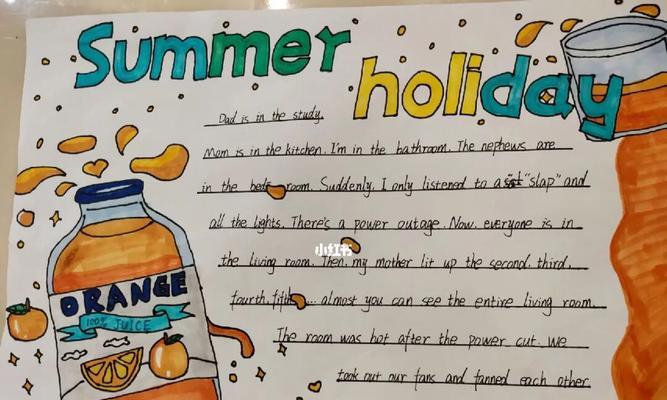 Summer
holiday
Dad is in the study.
Mom is in the kitchen. I'm in the bathroom. The nephews are
in the bedroom. Suddenly, I only listened to a "slap" and
all the lights. There's a power outage. Now, everyone is in
the living room. Then, my mother lit up the second, third,
fourth, fifth... almost you can see the entire living room.
The room was hot after the power cut. We
took out our fans and fanned each other.
ORANGE
100% JUICE
小红书